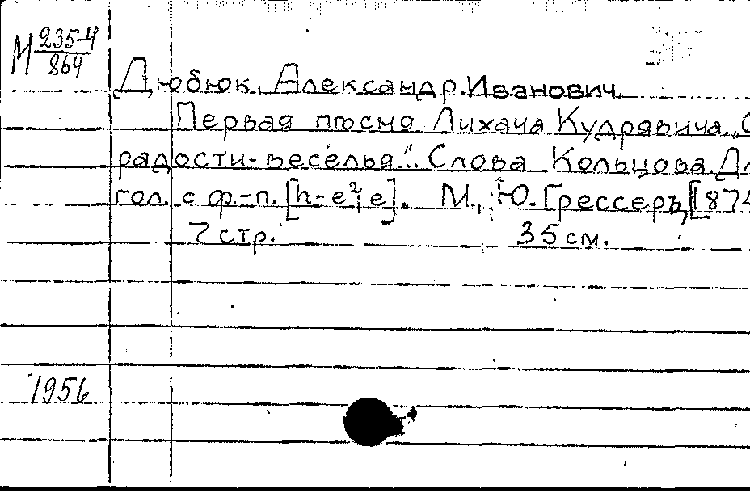 М 235-4
864
Дюбюк, Александр Иванович.
Первая песня Лихача Кудрявича „С
радости-веселья". Слова Кольцова. Дл
гол. с ф.-п. [h-e²; e]. М., Ю. Грессеръ, [187
7 стр. 35 см.
1956